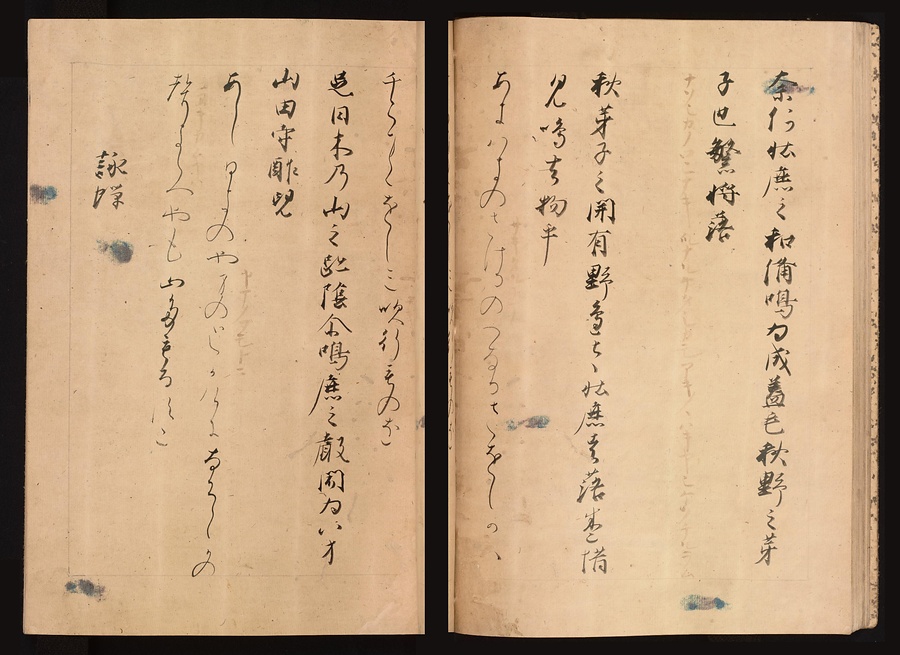 奈何牡鹿之和備鳴為成蓋毛秋野之芽
子也繁将落
秋芽子之開有野邊左牡鹿者落巻惜
見鳴去物乎
あきハきのさけるのへのさをしかハ
ちらまくをしミ鳴行ものを
足日木乃山之跡陰尓鳴鹿之聲聞為八方
山田守酢児
あしひきのやまのとかけになくしかの
聲きくやも山田もるすこ
詠蝉